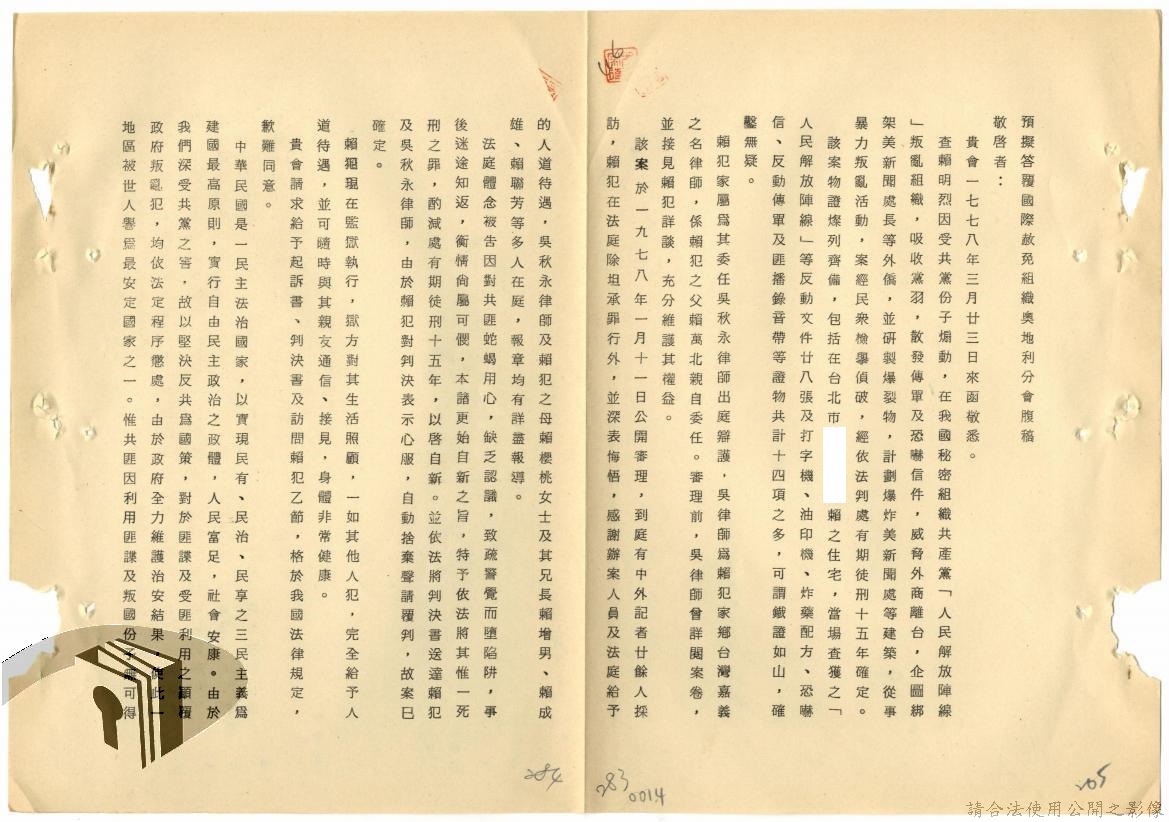 預擬答覆國際赦免組織奧地利分會腹稿
敬啓者：
貴會一七七八年三月廿三日來函敬悉。
查賴明烈因受共黨份子煽動，在我國秘密組織共產黨「人民解放陣線
」叛亂組織，吸收黨羽，散發傳單及恐嚇信件，威脅外商離台，企圖綁
架美新聞處長等外僑，並研製爆裂物，計劃爆炸美新聞處等建築，從事
暴力叛亂活動，案經民衆檢舉偵破，經依法判處有期徒刑十五年確定。
該案物證燦列齊備，包括在台北市 賴之住宅，當場查獲之「
人民解放陣線」等反動文件廿八張及打字機、油印機、炸藥配方、恐嚇
信、反動傳單及匪播錄音帶等證物共計十四項之多，可謂鐵證如山，確
鑿無疑。
賴犯家屬爲其委任吳秋永律師出庭辯護，吳律師爲賴犯家鄉台灣嘉義
之名律師，係賴犯之父賴萬北親自委任。審理前，吳律師曾詳閱案卷，
並接見賴犯詳談，充分維護其權益。
該案於一九七八年一月十一日公開審理，到庭有中外記者廿餘人採
訪，賴犯在法庭除坦承罪行外，並深表悔悟，感謝辦案人員及法庭給予
的人道待遇，吳秋永律師及賴犯之母賴櫻桃女士及其兄長賴增男、賴成
雄、賴聯芳等多人在庭，報章均有詳盡報導。
法庭體念被告因對共匪蛇蝎用心，缺乏認識，致疏警覺而墮陷阱，事
後迷途知返，衡情尙屬可憫，本諸更始自新之旨，特予依法將其惟一死
刑之罪，酌減處有期徒刑十五年，以啓自新。並依法將判決書送達賴犯
及吳秋永律師，由於賴犯對判決表示心服，自動捨棄聲請覆判，故案已
確定。
賴犯現在監獄執行，獄方對其生活照顧，一如其他人犯，完全給予人
道待遇，並可隨時與其親友通信、接見，身體非常健康。
貴會請求給予起訴書、判決書及訪問賴犯乙節，格於我國法律規定，
歉難同意。
中華民國是一民主法治國家，以實現民有、民治、民享之三民主義爲
建國最高原則，實行自由民主政治之政體，人民富足，社會安康。由於
我們深受共黨之害，故以堅決反共爲國策，對於匪諜及受匪利用之顚覆
政府叛亂犯，均依法定程序懲處，由於政府全力維護治安結果，使此一
地區被世人譽爲最安定國家之一。惟共匪因利用匪諜及叛國份子無可得
205
283
0014
284
請合法使用公開之影像